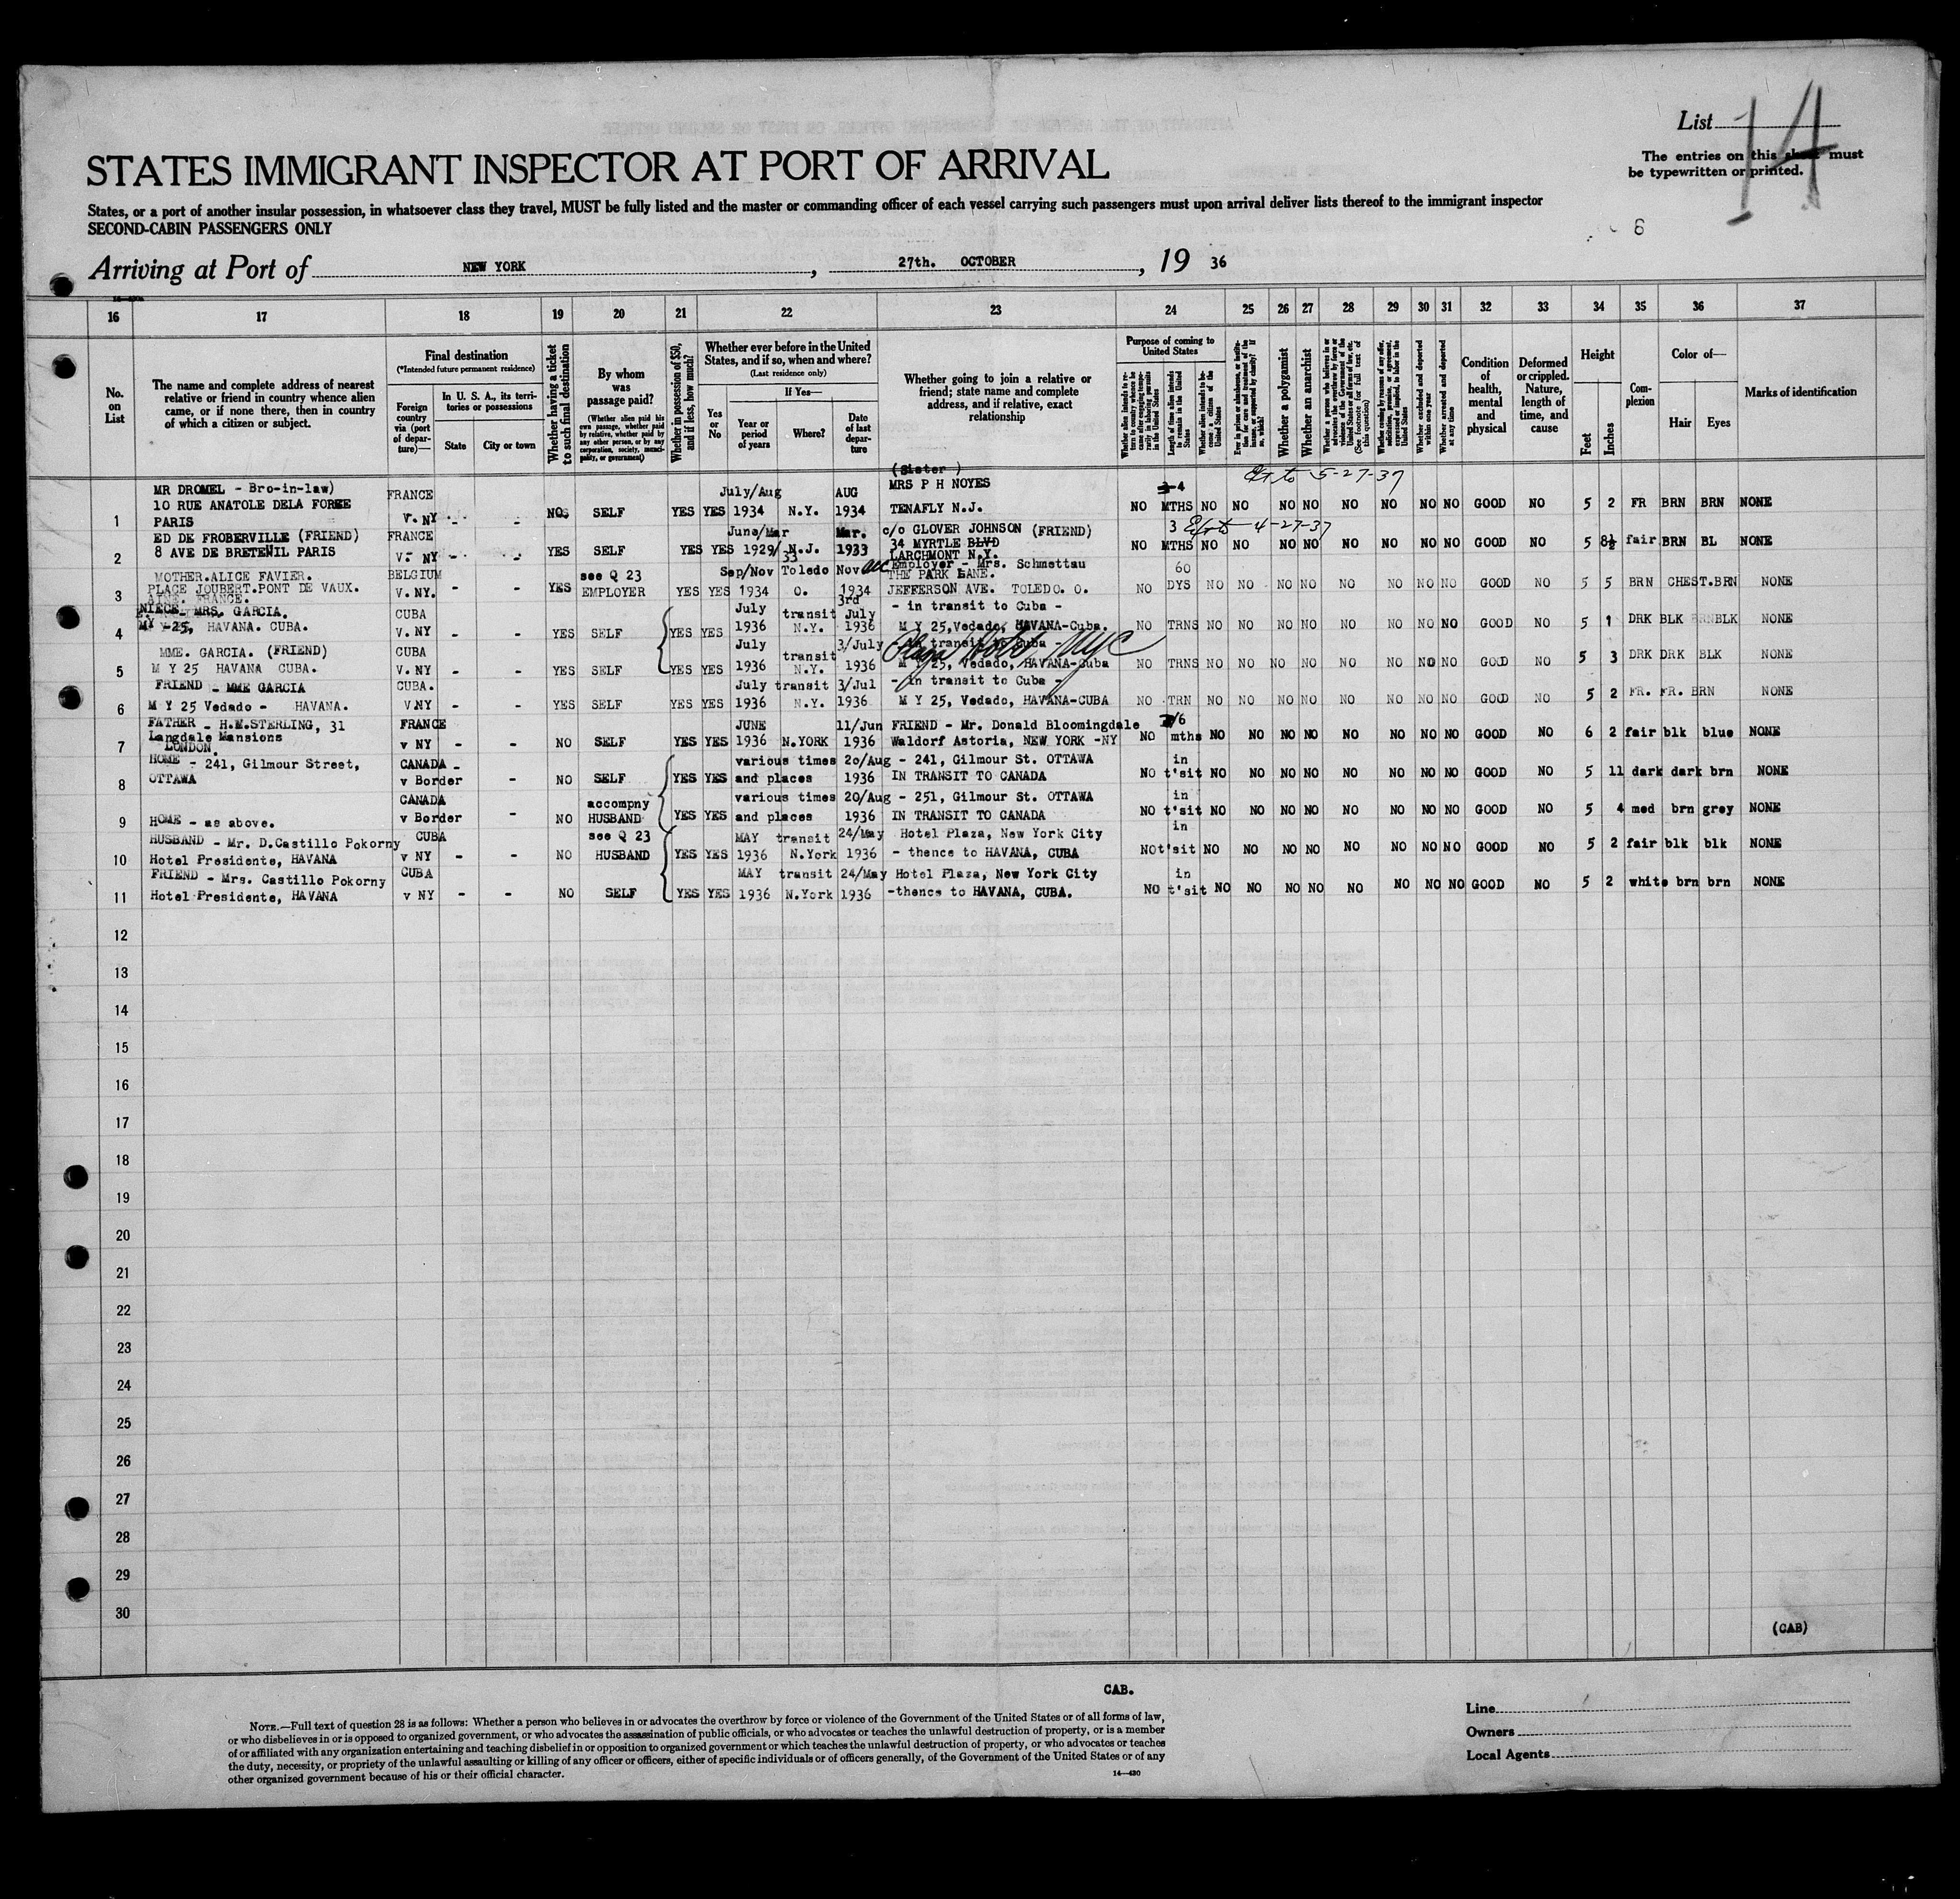 List 14
The entries on this sheet must
be typewritten or printed.
STATES IMMIGRANT INSPECTOR AT PORT OF ARRIVAL
States, or a port of another insular possession, in whatsoever class they travel, MUST be fully listed and the master or commanding officer of each vessel carrying such passengers must upon arrival deliver lists thereof to the immigrant inspector
SECOND-CABIN PASSENGERS ONLY
6
Arriving at Port of NEW YORK, 27th. OCTOBER, 19 36
16 17 18 19 20 21 22 23 24 25 26 27 28 29 30 31 32 33 34 35 36 37
No. on List
The name and complete address of nearest relative or friend in country whence alien came, or if none there, then in country of which a citizen or subject.
Final destination
(*Intended future permanent residence)
Foreign country via (port of departure)—
In U. S. A., its territories or possessions
State
City or town
Whether having a ticket to such final destination
By whom was passage paid?
(Whether alien paid his own passage, whether paid by relative, whether paid by any other person, or by any corporation, society, municipality, or government)
Whether in possession of $50, and if less, how much?
Whether ever before in the United States, and if so, when and where?
(Last residence only)
Yes or No
If Yes—
Year or period of years
Where?
Date of last departure
Whether going to join a relative or friend; state name and complete address, and if relative, exact relationship
Purpose of coming to United States
Length of time alien intends to remain in the United States
Whether alien intends to become a citizen of the United States
Whether a polygamist
Whether an anarchist
Whether excluded and deported within one year
Whether arrested and deported at any time
Condition of health, mental and physical
Deformed or crippled. Nature, length of time, and cause
Height
Feet
Inches
Complexion
Color of—
Hair
Eyes
Marks of identification
(Sister)
5-27-37
MR DROMEL - Bro-in-law) FRANCE July/Aug AUG MRS P H NOYES 4
10 RUE ANATOLE DELA FORGE
1 PARIS V. NY - - NO SELF YES YES 1934 N.Y. 1934 TENAFLY N.J. NO MTHS NO NO NO NO NO NO NO NO GOOD NO 5 2 FR BRN BRN NONE
ED DE FROBERVILLE (FRIEND) FRANCE June/Mar Mar. c/o GLOVER JOHNSON (FRIEND) 3 4-27-37
2 8 AVE DE BRETEUIL PARIS V. NY - - YES SELF YES YES 1929/33 N.J. 1933 34 MYRTLE BLVD NO MTHS NO NO NO NO NO NO NO NO GOOD NO 5 8½ fair BRN BL NONE
LARCHMONT N.Y.
MOTHER.ALICE FAVIER. BELGIUM see Q 23 Sep/Nov Toledo Nov Employer - Mrs. Schmettau 60
PLACE JOUBERT.PONT DE VAUX. THE PARK LANE.
3 AINE. FRANCE. V. NY. YES EMPLOYER YES YES 1934 O. 1934 JEFFERSON AVE. TOLEDO. O. NO DYS NO NO NO NO NO NO NO NO GOOD NO 5 5 BRN CHEST.BRN NONE
NIECE- MRS. GARCIA. CUBA July transit 3rd July - in transit to Cuba -
4 M Y -25, HAVANA. CUBA. V. NY - - YES SELF YES YES 1936 N.Y. 1936 M Y 25,Vedado, HAVANA-Cuba. NO TRNS NO NO NO NO NO NO NO NO GOOD NO 5 1 DRK BLK BLK NONE
MME. GARCIA. (FRIEND) CUBA July transit 3/July transit to Cuba -
5 M Y 25 HAVANA CUBA. V. NY - - YES SELF YES YES 1936 N.Y. 1936 M Y 25, Vedado, HAVANA-Cuba NO TRNS NO NO NO NO NO NO NO NO GOOD NO 5 3 DRK DRK BLK NONE
FRIEND - MME GARCIA CUBA. July transit 3/Jul - in transit to Cuba -
6 M Y 25 Vedado - HAVANA. V.NY - - YES SELF YES YES 1936 N.Y. 1936 M Y 25, Vedado, HAVANA-CUBA NO TRN NO NO NO NO NO NO NO NO GOOD NO 5 2 FR. FR. BRN NONE
FATHER - H.M.STERLING, 31 FRANCE JUNE 11/Jun FRIEND - Mr. Donald Bloomingdale /6
Langdale Mansions
7 LONDON. v NY - - NO SELF YES YES 1936 N.YORK 1936 Waldorf Astoria, NEW YORK -NY NO mths NO NO NO NO NO NO NO NO GOOD NO 6 2 fair blk blue NONE
HOME - 241, Gilmour Street, CANADA - various times 20/Aug - 241, Gilmour St. OTTAWA in
8 OTTAWA v Border - NO SELF YES YES and places 1936 IN TRANSIT TO CANADA NO t'sit NO NO NO NO NO NO NO NO GOOD NO 5 11 dark dark brn NONE
CANADA accompny various times 20/Aug - 251, Gilmour St. OTTAWA in
9 HOME - as above. v Border - NO HUSBAND YES YES and places 1936 IN TRANSIT TO CANADA NO t'sit NO NO NO NO NO NO NO NO GOOD NO 5 4 med brn grey NONE
HUSBAND - Mr. D.Castillo Pokorny CUBA see Q 23 MAY transit 24/May Hotel Plaza, New York City in
10 Hotel Presidente, HAVANA v NY - - NO HUSBAND YES YES 1936 N.York 1936 - thence to HAVANA, CUBA NO t'sit NO NO NO NO NO NO NO NO GOOD NO 5 2 fair blk blk NONE
FRIEND - Mrs. Castillo Pokorny CUBA MAY transit 24/May Hotel Plaza, New York City in
11 Hotel Presidente, HAVANA v NY - - NO SELF YES YES 1936 N.York 1936 -thence to HAVANA, CUBA. NO t'sit NO NO NO NO NO NO NO NO GOOD NO 5 2 white brn brn NONE
12
13
14
15
16
17
18
19
20
21
22
23
24
25
26
27
28
29
30
(CAB)
CAB.
NOTE.—Full text of question 28 is as follows: Whether a person who believes in or advocates the overthrow by force or violence of the Government of the United States or of all forms of law,
or who disbelieves in or is opposed to organized government, or who advocates the assassination of public officials, or who advocates or teaches the unlawful destruction of property, or is a member
of or affiliated with any organization entertaining and teaching disbelief in or opposition to organized government or which teaches the unlawful destruction of property, or who advocates or teaches
the duty, necessity, or propriety of the unlawful assaulting or killing of any officer or officers, either of specific individuals or of officers generally, of the Government of the United States or of any
other organized government because of his or their official character.
14—430
Line
Owners
Local Agents